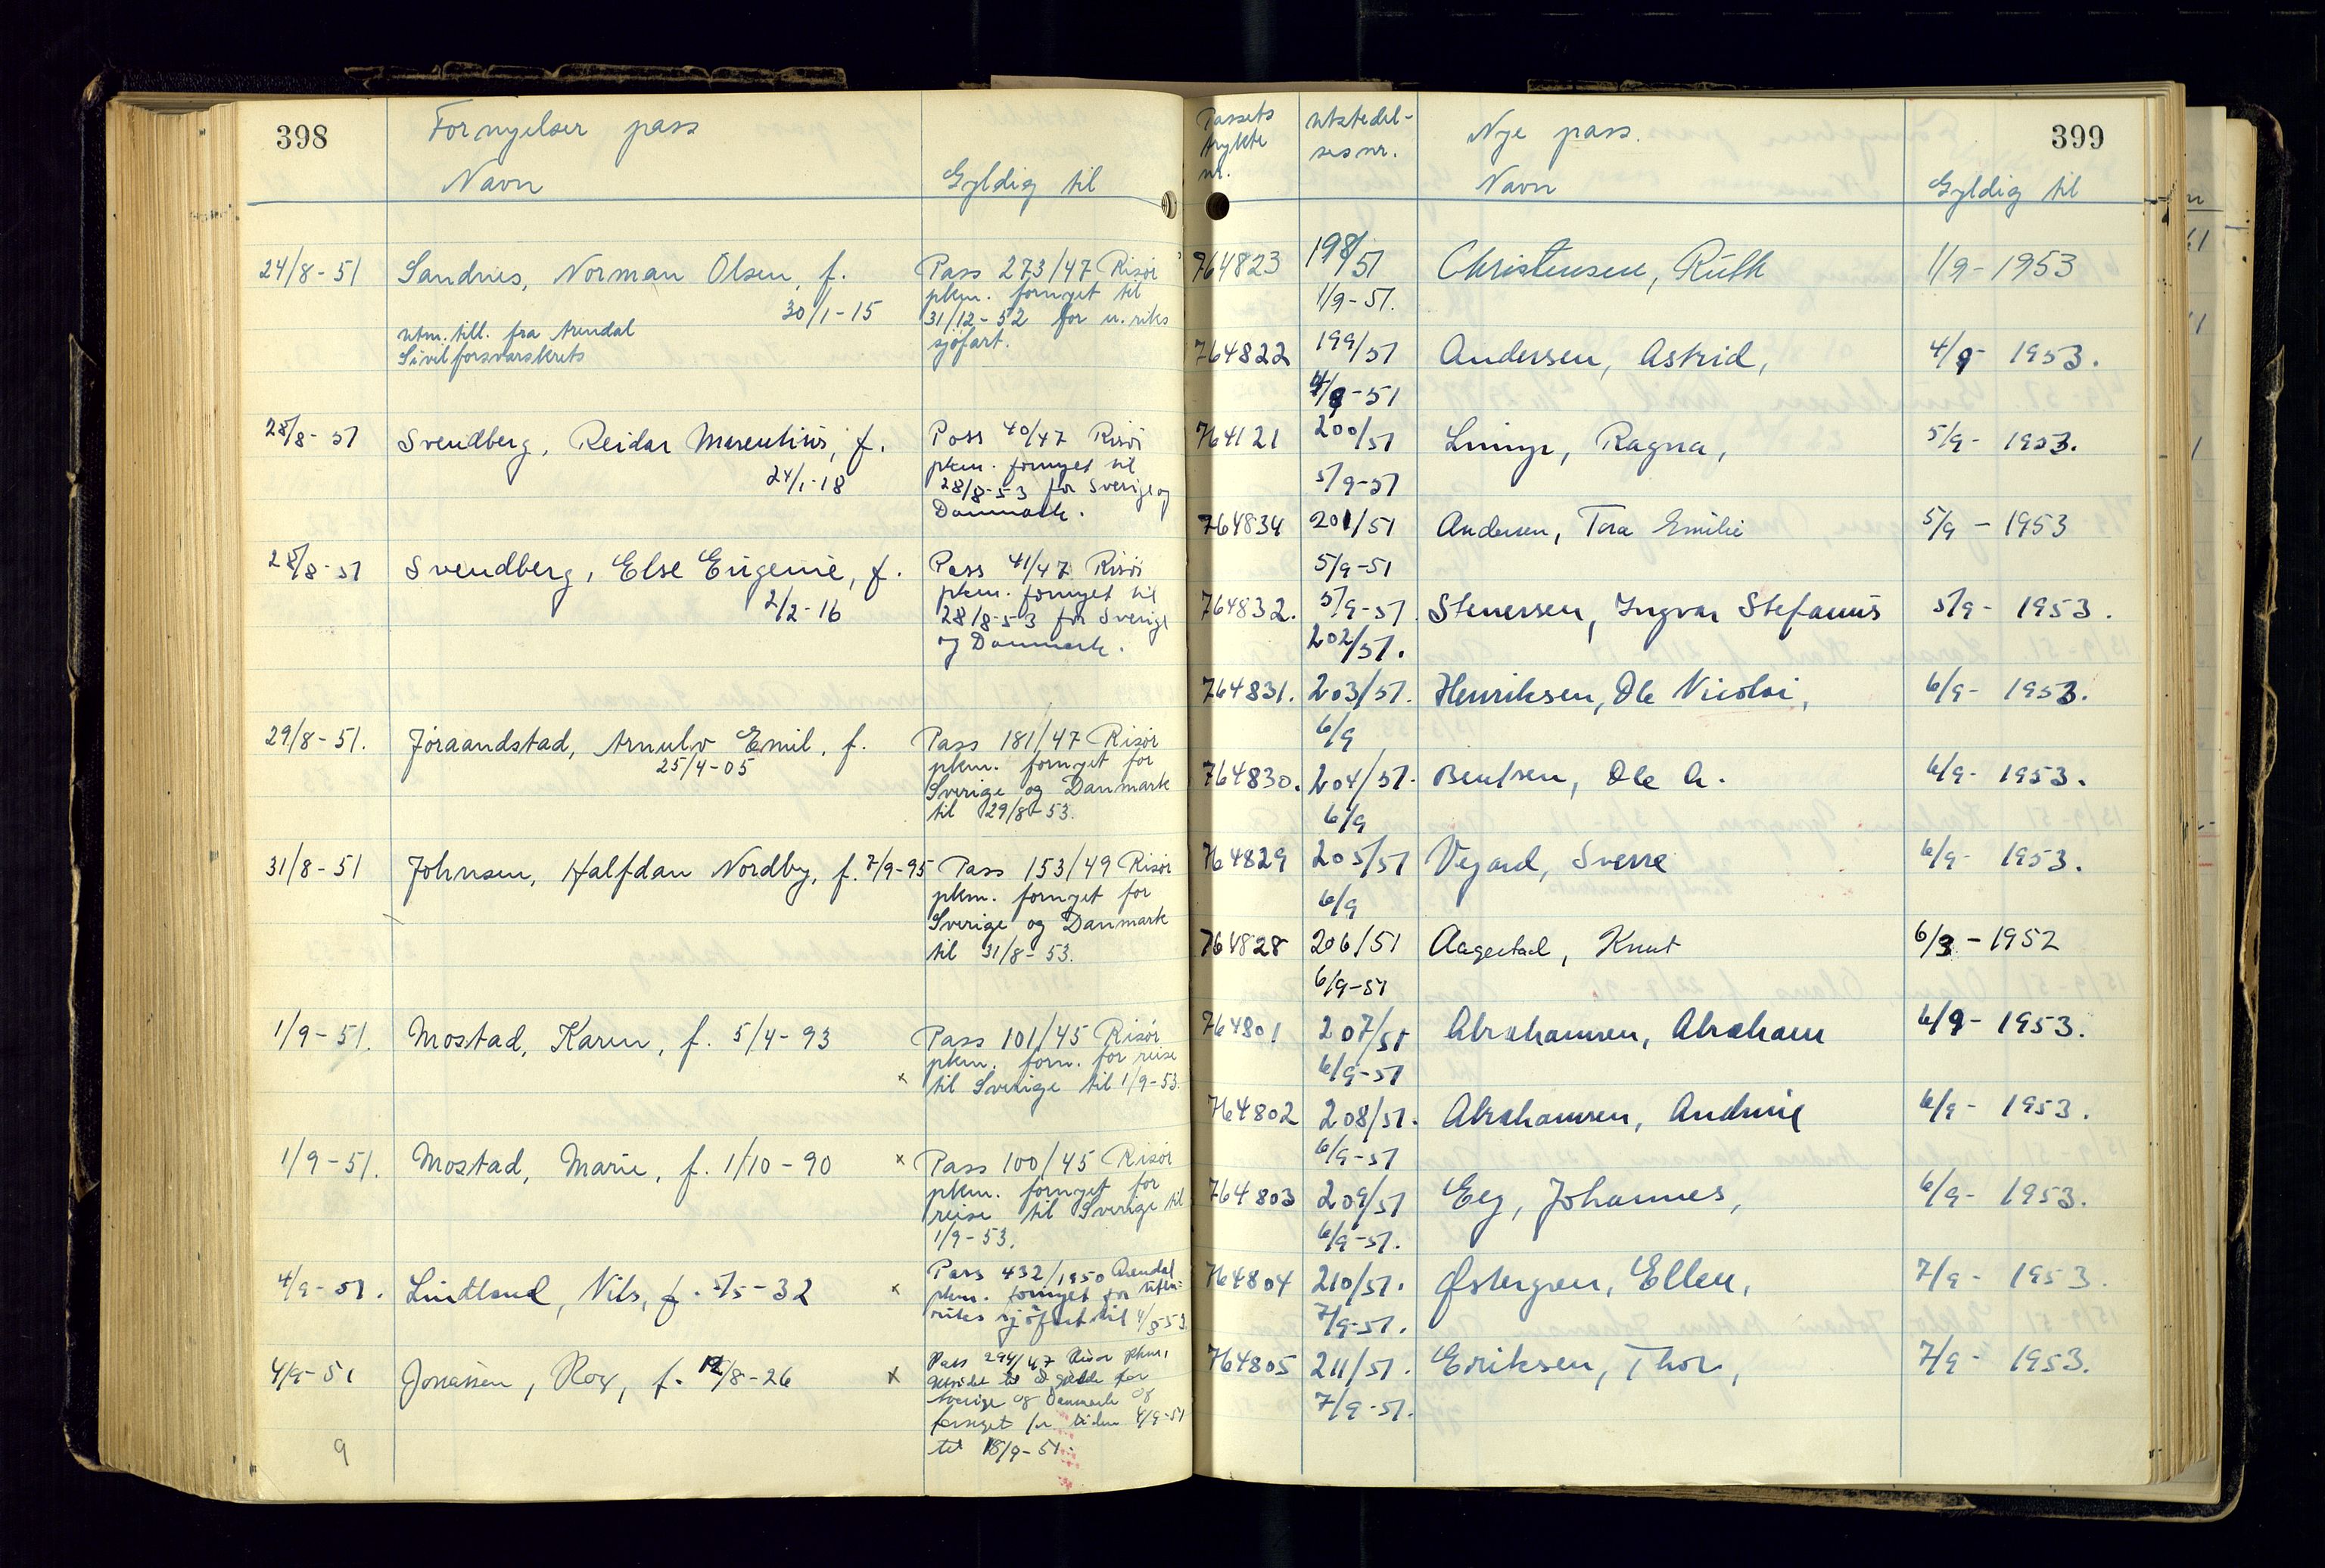 398
Fornyelser pass
Navn
Gyldig til
24/8-51 Sandnes, Norman Olsen, f.
30/1-15
utm. till. fra Arendal
Sivilforsvarskrets
Pass 273/47 Risør
pkm. fornyet til
31/12-52 for u.riks
sjøfart.
28/8-51 Svendberg, Reidar Marentius, f.
24/1-18
Pass 40/47 Risør
pkm. fornyet til
28/8-53 for Sverige og
Danmark.
28/8-51 Svendberg, Else Eugenie, f.
2/2-16
Pass 41/47 Risør
pkm. fornyet til
28/8-53 for Sverige
og Danmark.
29/8-51. Jøraandstad, Arnulv Emil, f.
25/4-05
Pass 181/47 Risør
pkm. fornyet for
Sverige og Danmark
til 29/8-53.
31/8-51 Johnsen, Halfdan Nordby, f. 7/9-95
Pass 153/49 Risør
pkm. fornyet for
Sverige og Danmark
til 31/8-53.
1/9-51. Mostad, Karen, f. 5/4-93
Pass 101/45 Risør
pkm. forn. for reise
x til Sverige til 1/9-53.
1/9-51. Mostad, Marie, f. 1/10-90
x Pass 100/45 Risør
pkm. fornyet for
reise til Sverige til
1/9-53.
4/9-51. Lindtland, Nils, f. 5/5-32
x Pass 432/1950 Arendal
pkm. fornyet for uten-
riks sjøfart til
4/9-51 Jonassen, Roy, f. 12/8-26
x Pass 294/47 Risør pkm.
utvidet til å gjelde for
Sverige og Danmark og
fornyet for tiden 4/9-51
til 18/9-51.
9
399
Passets
trykte
nr.
utstedel-
ses nr.
Nye pass.
Navn
Gyldig til
764823 198/51 Christensen, Ruth 1/9-1953
1/9-51.
764822 199/51 Andersen, Astrid, 4/9- 1953.
4/9-51
764121 200/51 Ragna, 5/9- 1953.
5/9-51
764834 201/51 Andersen, Tora Emilie 5/9 - 1953
5/9-51
764832. 5/9-51 Stenersen, Ingvar Stefanus 5/9- 1953.
202/51.
764831. 203/51. Henriksen, Ole Nicolai, 6/9- 1953.
6/9
764830. 204/51. Bentsen, Ole A. 6/9- 1953.
6/9
764829 205/51 Vegard, Sverre 6/9- 1953.
6/9
764828 206/51 Aagestad, Knut 6/3-1952
6/9-51
764801 207/51 Abrahamsen, Abraham 6/9- 1953.
6/9-51
764802 208/51. Abrahamsen, Andrine 6/9- 1953.
6/9-51
764803 209/51 Eeg, Johannes, 6/9- 1953.
6/9-51.
764804 210/51. Østergren, Ellen, 7/9- 1953.
7/9-51.
764805 211/51. Eriksen, Thor, 7/9- 1953.
7/9-51.